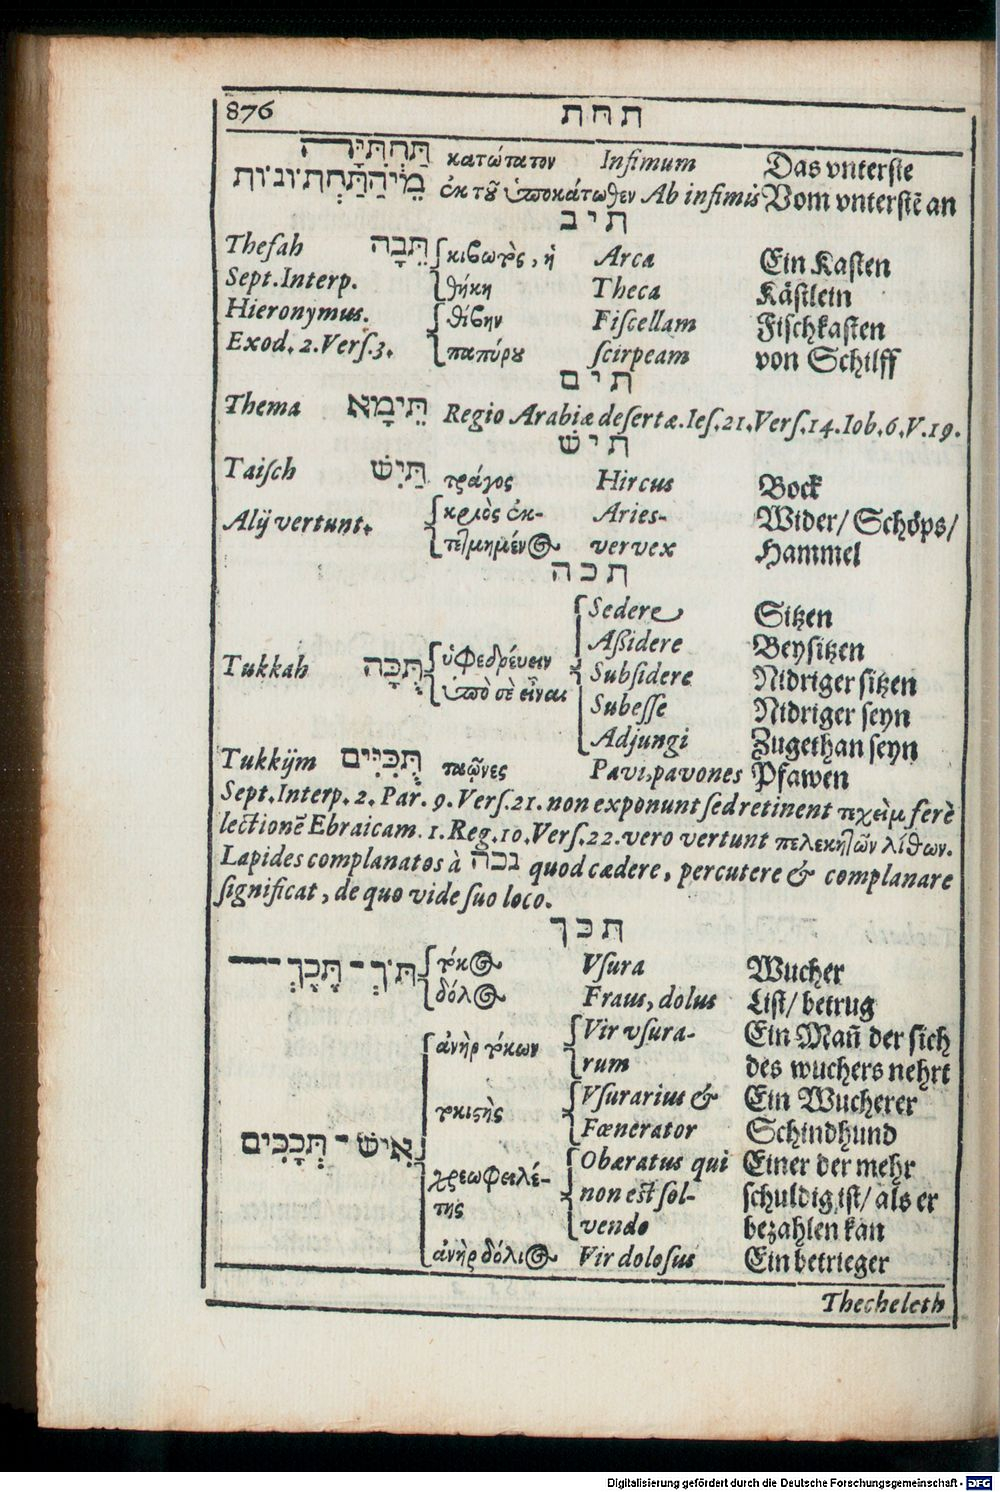 876 תחת
תַּחְתִּיָּה κατώτατον Infimum Das vnterste
ἐκ τȣ͂ ὑποκάτωθεν Ab infimis Vom vnterstē an
תיב
Thefah תֵּבָה κιβωτὸς, ἡ Arca Ein Kasten
Sept. Interp. θήκη Theca Kästlein
Hieronymus. θίβην Fiscellam Fischkasten
Exod. 2. Vers. 3. παπύρȣ scirpeam von Schilff
תים
Thema תֵּימָא Regio Arabiæ desertæ. Ies. 21. Vers. 14. Iob. 6. V. 19.
תיש
Taisch תַּיִשׁ τράγος Hircus Bock
Alij vertunt. κριὸς ἐκ- Aries- Wider/ Schöps/
τετμημένος vervex Hammel
תכה
Sedere Sitzen
Aßidere Beysitzen
Tukkah תֻּכָּה ὑφεδρέυειν Subsidere Nidriger sitzen
ὑπὸ σὲ εἶναι Subesse Nidriger seyn
Adjungi Zugethan seyn
Tukkijm תֻּכִּיִּים ταῶνες Pavi, pavones Pfawen
Sept. Interp. 2. Par. 9. Vers. 21. non exponunt sed retinent τεχεὶμ ferè
lectionē Ebraicam. 1. Reg. 10. Vers. 22. vero vertunt πελεκητῶν λίθων.
Lapides complanatos à נכה quod cædere, percutere & complanare
significat, de quo vide suo loco.
תכך
תֹּךְ - תָּכָךְ τόκος Vsura Wucher
δόλος Fraus, dolus List/ betrug
ἀνὴρ τόκων Vir vsura- Ein Mañ der sich
rum des wuchers nehrt
τοκιστὴς Vsurarius & Ein Wucherer
Fœnerator Schindhund
אִישׁ - תְּכָכִים χρεωφειλέ- Obæratus qui Einer der mehr
της non est sol- schuldig ist/ als er
vendo bezahlen kan
ἀνὴρ δόλιος Vir dolosus Ein betrieger
Thecheleth
Digitalisierung gefördert durch die Deutsche Forschungsgemeinschaft - DFG